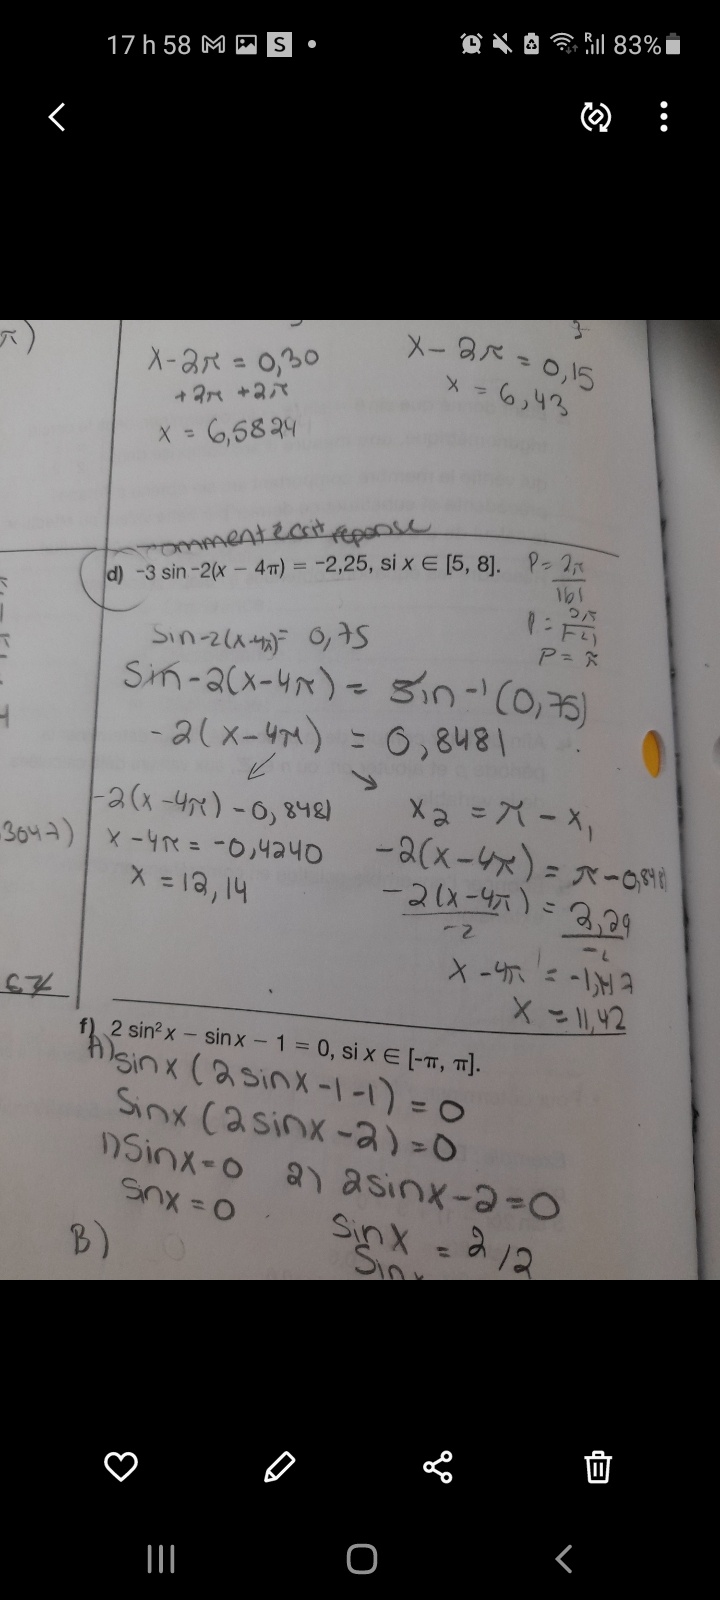 17 h 58 S
R 83%
π)
x-2π = 0,30
+2π +2π
x = 6,5824
x- 2π = 0,15
x = 6,43
comment écrit réponse
d) -3 sin -2(x - 4π) = -2,25, si x ∈ [5, 8].
P = 2π
|b|
P = π
sin-2(x-4π)= 0,75
Sin-2(x-4π) = Sin⁻¹(0,75)
-2(x-4π) = 0,8481
-2(x-4π) - 0,8481
x-4π = -0,4240
x = 12,14
x₂ = π - x₁
-2(x-4π) = π-0,8481
-2(x-4π) = 2,29
-2
x-4π = -1,147
x = 11,42
3047)
f) 2 sin²x - sin x - 1 = 0, si x ∈ [-π, π].
A) sinx (2sinx-1-1) = 0
Sinx (2sinx-2)=0
1) Sinx=0 2) 2sinx-2=0
Sinx=0
Sinx = 2/2
B)